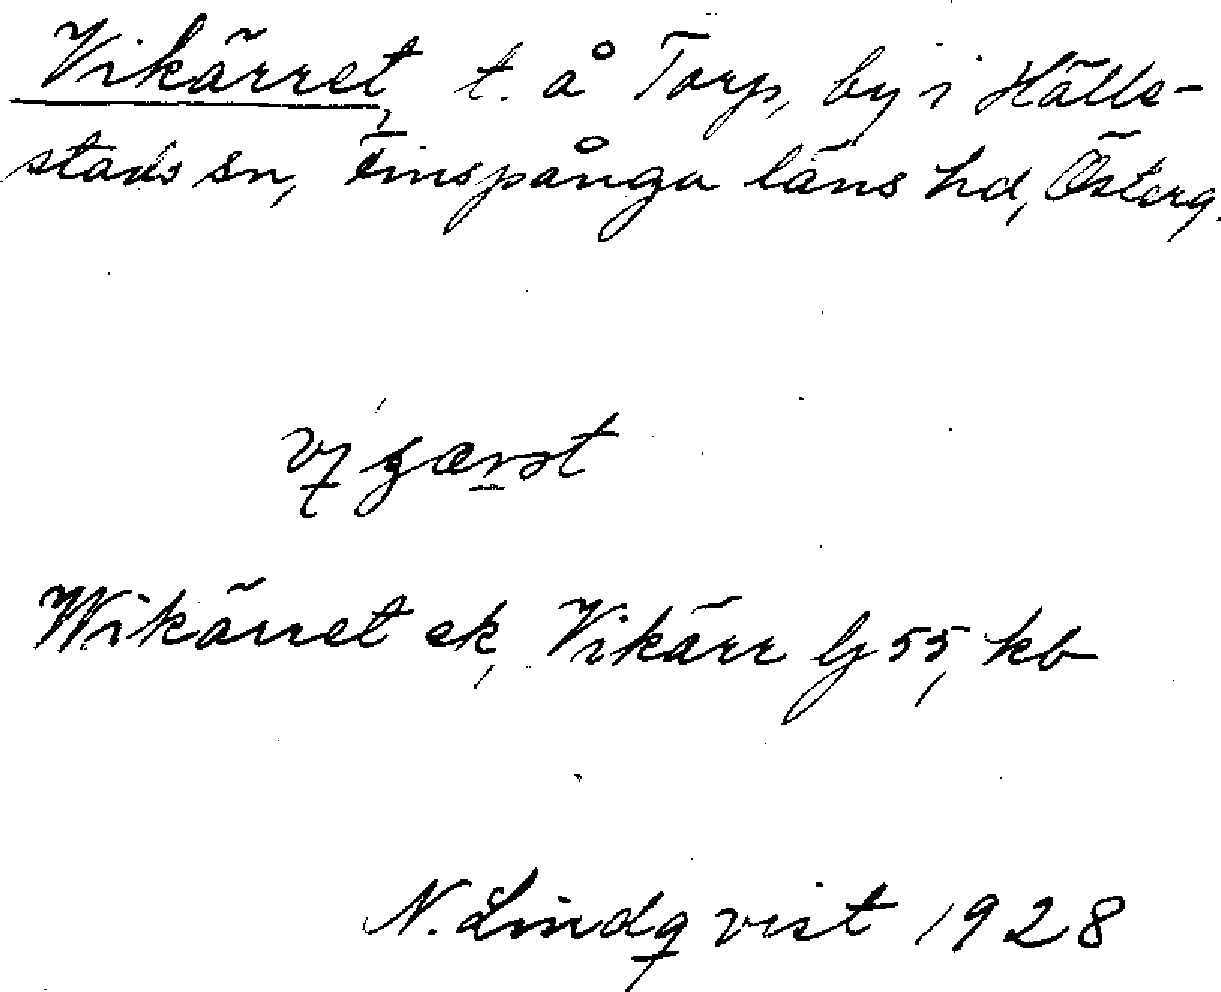 Vikärret, t. å Torp, by i Hälle-
stads sn, Finspånga läns hd, Österg.
Wikärret ek, Vikärr Gj 55, kb
N. Lindqvist 1928